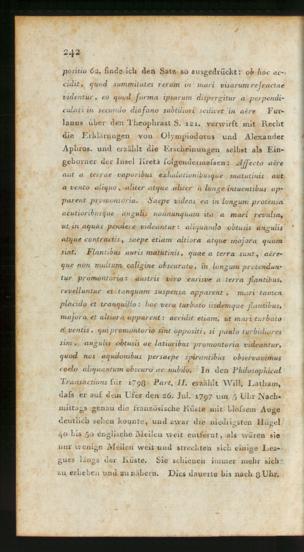 242
positio 62. finde ich den Satz so ausgedrückt: ob hoc ac-
cidit, quod summitates rerum in mari visarum refractae
videntur, eo quod forma ipsarum dispergitur a perpendi-
culari in secundo diafano subtiliori scilicet in aëre. Fur-
lanus über den Theophrast S. 121. verwirft mit Recht
die Erklärungen von Olympiodorus und Alexander
Aphros. und erzählt die Erscheinungen selbst als Ein-
geborner der Insel Kreta folgendermaſsen: Affecto aëre
aut a terrae vaporibus exhalationibusque matutinis aut
a vento aliquo, aliter atque aliter a longe intuentibus ap-
parent promontoria. Saepe videas ea in longum protensa
acutioribusque angulis nonnunquam ita a mari revulsa,
ut in aquas pendere videantur: aliquando obtusis angulis
atque contractis, saepe etiam altiora atque majora quam
sint. Flantibus auris matutinis, quae a terra sunt, aëre-
que non multum caligine obscurato, in longum protendun-
tur promontoria: austris vero eurisve a terra flantibus,
revelluntur et tanquam suspensa apparent, mari tamen
placido et tranquillo: hoc vero turbato iisdemque flantibus,
majora et altiora apparent: accidit etiam, ut mari turbato
a ventis, qui promontorio sint oppositi, si paulo turbidiores
sint, angulis obtusis ac latioribus promontoria videantur,
quod nos aquilonibus persaepe spirantibus observavimus
coelo aliquantum obscuro ac nubilo. In den Philosophical
Transactions für 1798 Part. II. erzählt Will. Latham,
daſs er auf dem Ufer den 26. Jul. 1797 um 5 Uhr Nach-
mittags genau die französische Küste mit bloſsem Auge
deutlich sehen konnte, und zwar die niedrigsten Hügel
40 bis 50 englische Meilen weit entfernt, als wären sie
nur wenige Meilen weit und streckten sich einige Lea-
gues längs der Küste. Sie schienen immer mehr sich
zu erheben und zu nähern. Dies dauerte bis nach 8 Uhr.